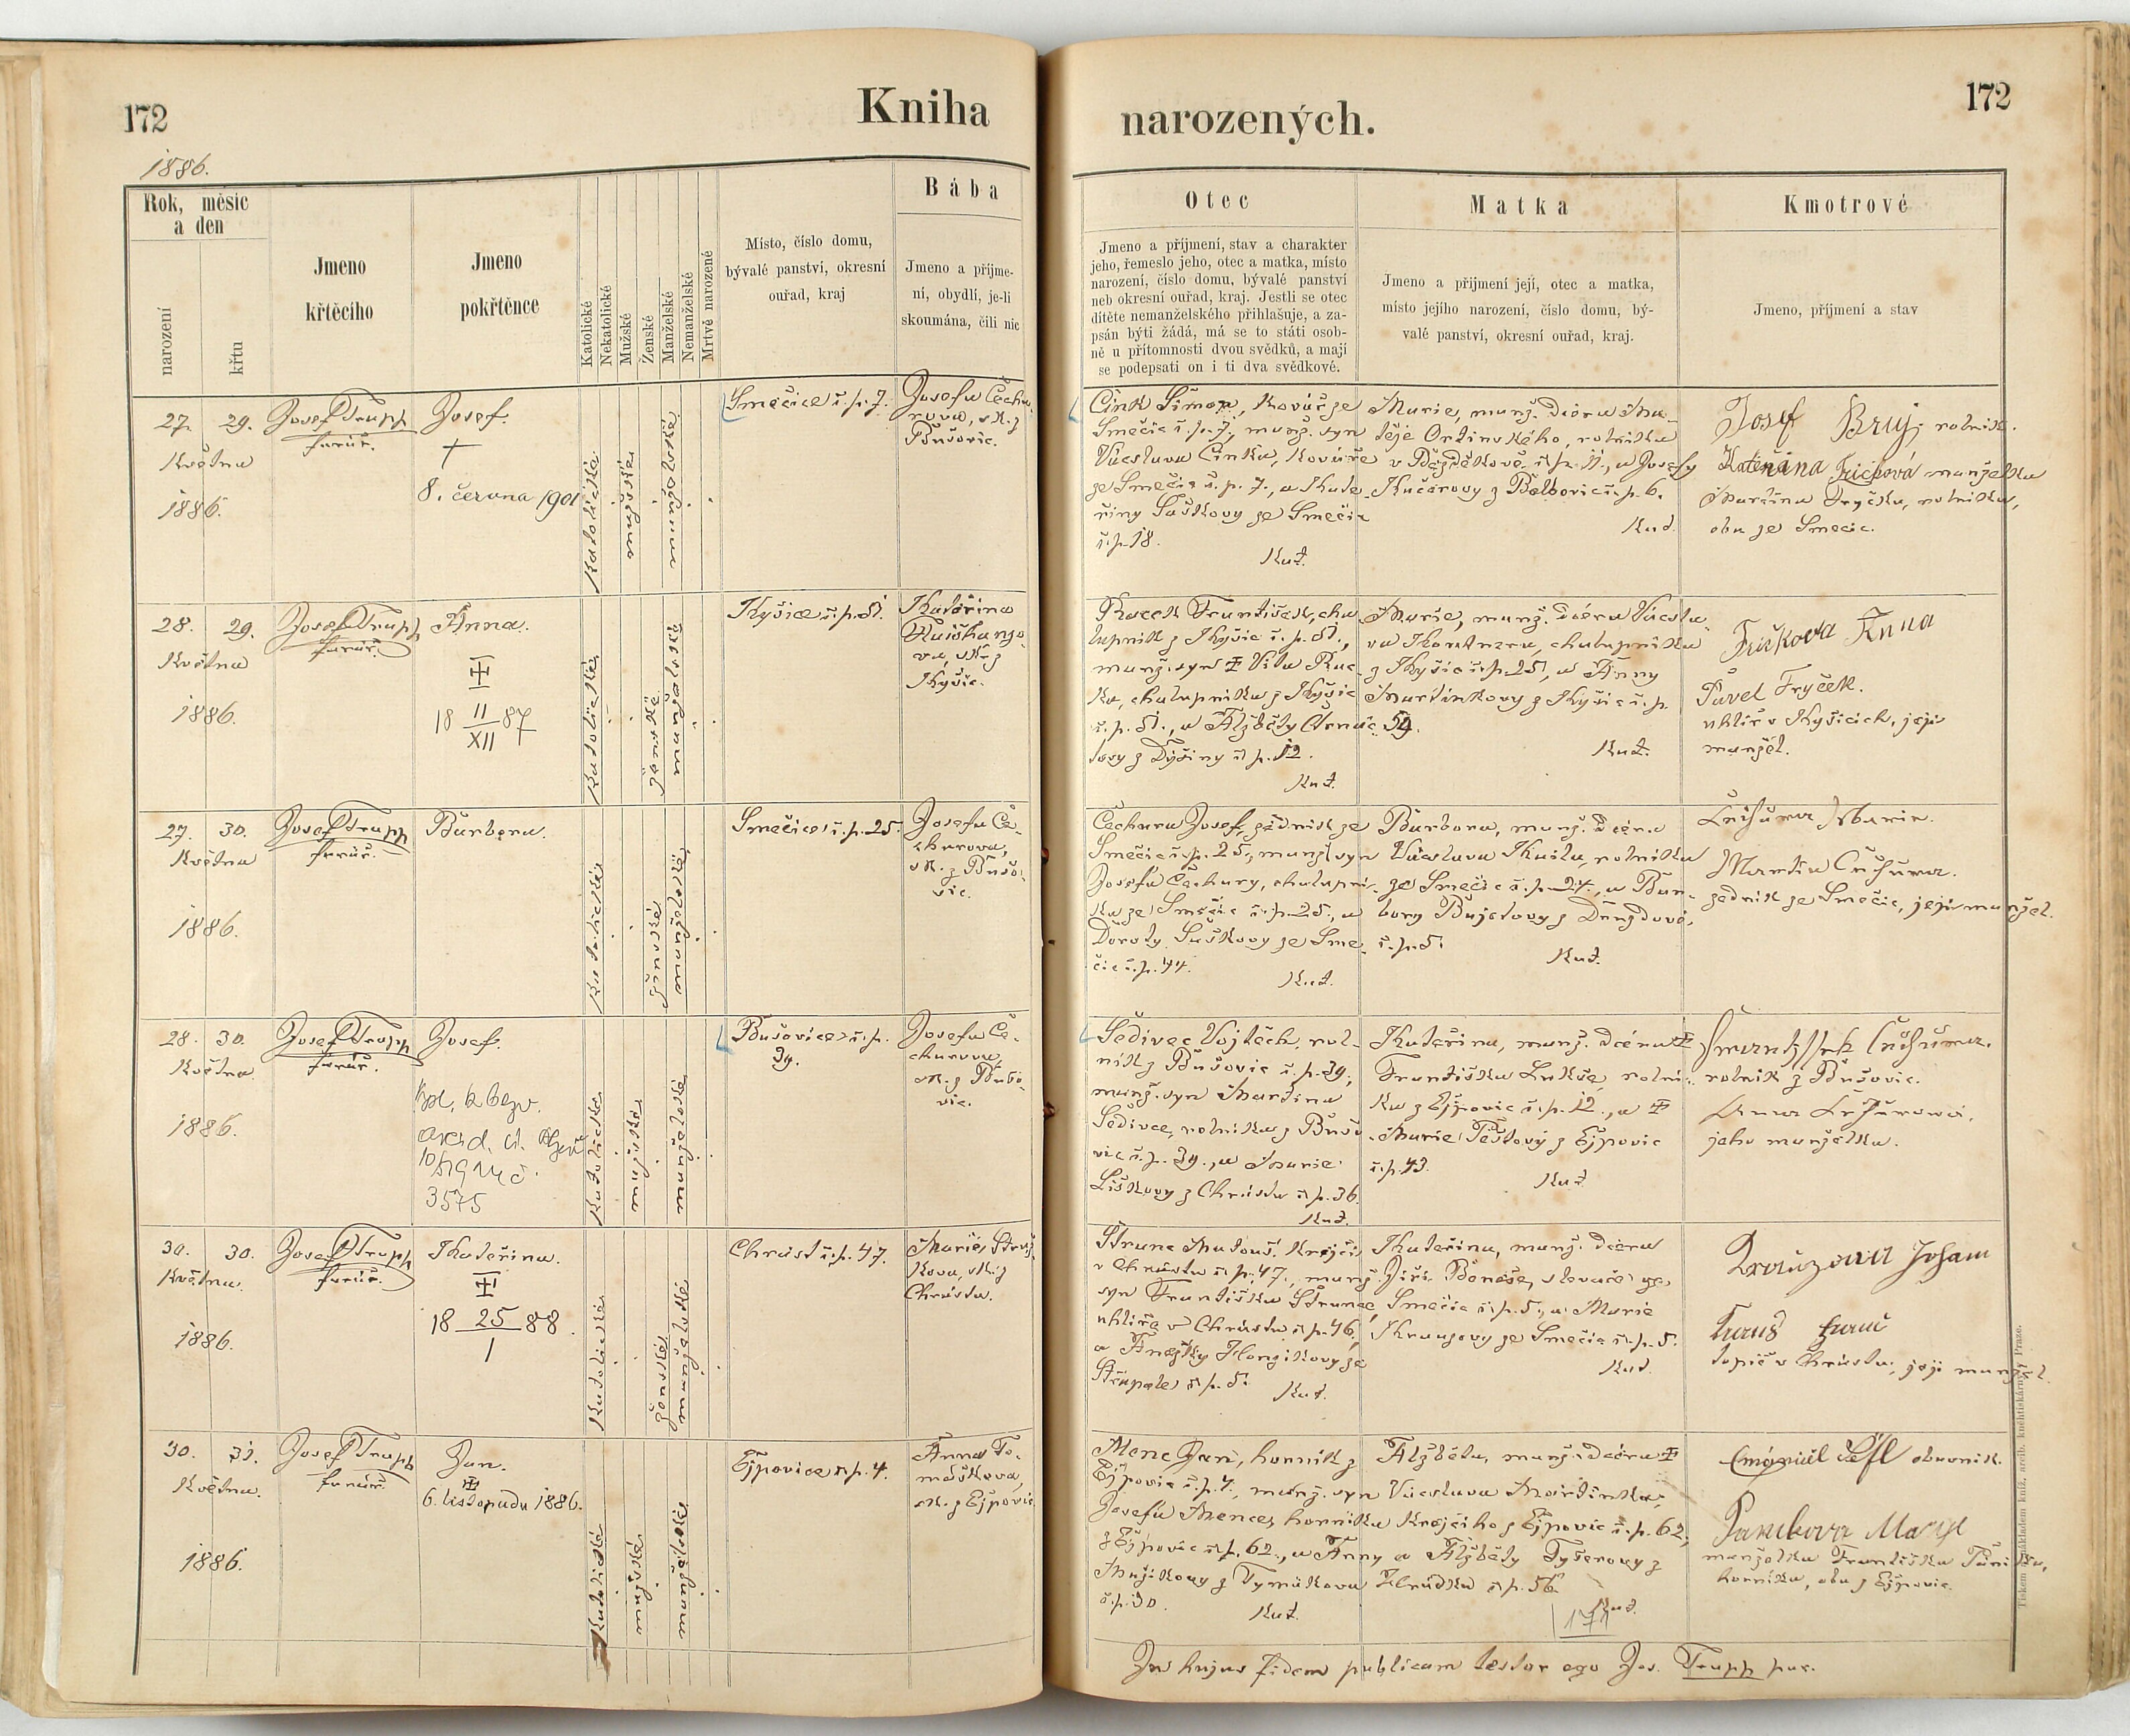 172
Kniha
narozených.
172
1886.
Rok, měsíc
a den
narození
křtu
Jmeno
křtěcího
Jmeno
pokřtěnce
Katolické
Nekatolické
Mužské
Ženské
Manželské
Nemanželské
Mrtvě narozené
Místo, číslo domu,
bývalé panství, okresní
ouřad, kraj
Bába
Jmeno a příjme-
ní, obydlí, je-li
skoumána, čili nic
Otec
Jmeno a příjmení, stav a charakter
jeho, řemeslo jeho, otec a matka, místo
narození, číslo domu, bývalé panství
neb okresní ouřad, kraj. Jestli se otec
dítěte nemanželského přihlašuje, a za-
psán býti žádá, má se to státi osob-
ně u přítomnosti dvou svědků, a mají
se podepsati on i ti dva svědkové.
Matka
Jmeno a přijmení její, otec a matka,
místo jejího narození, číslo domu, bý-
valé panství, okresní ouřad, kraj.
Kmotrové
Jmeno, příjmení a stav
27. 29.
Května
1886.
Josef Trapp
farář.
Josef.
+
8. června 1901
katolické
mužské
manželské
Smečice č. p. 7.
Josefa Čechu-
rova, zk. z
Bušovic.
Cink Šimon, kovář ze
Smečic č. p. 7., manž. syn
Václava Cinka, kováře
ze Smečic č. p. 7., a Kate-
řiny Suškovy ze Smečic
č. p. 18.
Kat.
Marie, manž. dcera Ma-
těje Ortinského, rolníka
v Bezděkově č. p. 11., a Josefy
Kučerovy z Bělbovic č. p. 6.
Kat.
Josef Bruj, rolník.
Kateřina Fričková manželka
Martina Fryčka, rolníka,
oba ze Smečic.
28. 29.
Května
1886.
Josef Trapp
farář.
Anna.
18 II/XII 87
katolické
ženské
manželské
Kyšice č. p. 51.
Kateřina
zk. z
Kyšic.
Racek František, cha-
lupník z Kyšic č. p. 51.,
manž. syn Víta Rac-
ka, chalupníka z Kyšic
č. p. 51., a Alžběty
z Dýšiny č. p. 12.
Kat.
Marie, manž. dcera Václa-
va, chalupníka
z Kyšic č. p. 25, a Anny
Martinkovy z Kyšic č. p.
59.
Kat.
Fričkova Anna
Pavel Fryček.
uhlíř v Kyšicích, její
manžel.
27. 30.
Května
1886.
Josef Trapp
farář.
Barbora.
katolické
ženské
manželské
Smečice č. p. 25.
Josefa Če-
churova,
zk. z Bušo-
vic.
Čechura Josef, zedník ze
Smečic č. p. 25., manž. syn
Josefa Čechury, chalupní-
ka ze Smečic č. p. 25., a
Doroty Suškovy ze Sme-
čic č. p. 44.
Kat.
Barbora, manž. dcera
Václava, rolníka
ze Smečic č. p. 24., a Bar-
bory
č. p. 5.
Kat.
Marie.
Martin Čechura.
zedník ze Smečic, její manžel.
28. 30.
Května
1886.
Josef Trapp
farář.
Josef.
3575
katolické
mužské
manželské
Bušovice č. p.
39.
Josefa Če-
churova,
zk. z Bušo-
vic.
Šedivec Vojtěch, rol-
ník z Bušovic č. p. 39.,
manž. syn Martina
Šedivce, rolníka z Bušo-
vic č. p. 39., a Marie
Liškovy z Chrástu č. p. 36.
Kat.
Kateřina, manž. dcera
Františka Lukše, rolní-
ka z Ejpovic č. p. 12., a
Marie Teštovy z Ejpovic
č. p. 43.
Kat.
Frantissek Čechura.
rolník z Bušovic.
Anna
jeho manželka.
30. 30.
Května.
1886.
Josef Trapp
farář.
Kateřina.
18 25/1 88.
katolické
ženské
manželské
Chrást č. p. 47.
Marie
zk. z
Chrástu.
Štrunc Matouš, krejčí
v Chrástu č. p. 47., manž.
syn Františka Štrunce,
uhlíře v Chrástu č. p. 46.,
a Anežky Honzikovy ze
Střapole č. p. 5.
Kat.
Kateřina, manž. dcera
Jiří Beneše, slevače ze
Smečic č. p. 5., a Marie
Krauzovy ze Smečic č. p. 5.
Kat.
topič v Chrástu, její manžel.
30. 31.
Května.
1886.
Josef Trapp
farář.
Jan.
6. listopadu 1886.
katolické
mužské
manželské
Ejpovice č. p. 4.
Anna To-
máškova,
zk. z Ejpovic
Menc Jan, horník z
Ejpovic č. p. 4., manž. syn
Josefa Mence, horníka
z Ejpovic č. p. 62., a Anny
Mužíkovy z Tymákova
č. p. 30.
Kat.
Alžběta, manž. dcera
Václava Martinka,
krejčího z Ejpovic č. p. 62,
a Alžběty Tyšerovy z
Hrádku č. p. 56.
Kat.
171
obuvník.
manželka Františka
horníka, oba z Ejpovic.
In hujus fidem publicam testor ego Jos. Trapp par.